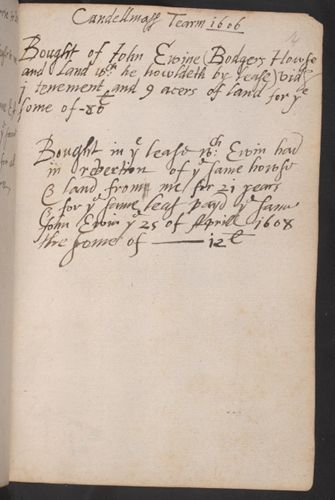 Candellmass Tearm 1606
Bought of John Ewine (Bodgers Howse
and land wch he howldeth by lease) vid
j tenement and 9 acers of land for ye
some of - 80l
Bought in ye lease wch Ewin had
in revertion of ye same howse
& land from me for 21 years
& for ye same leas payd ye same
John Ewin ye 25 of Aprill 1608
the some of —— 12l